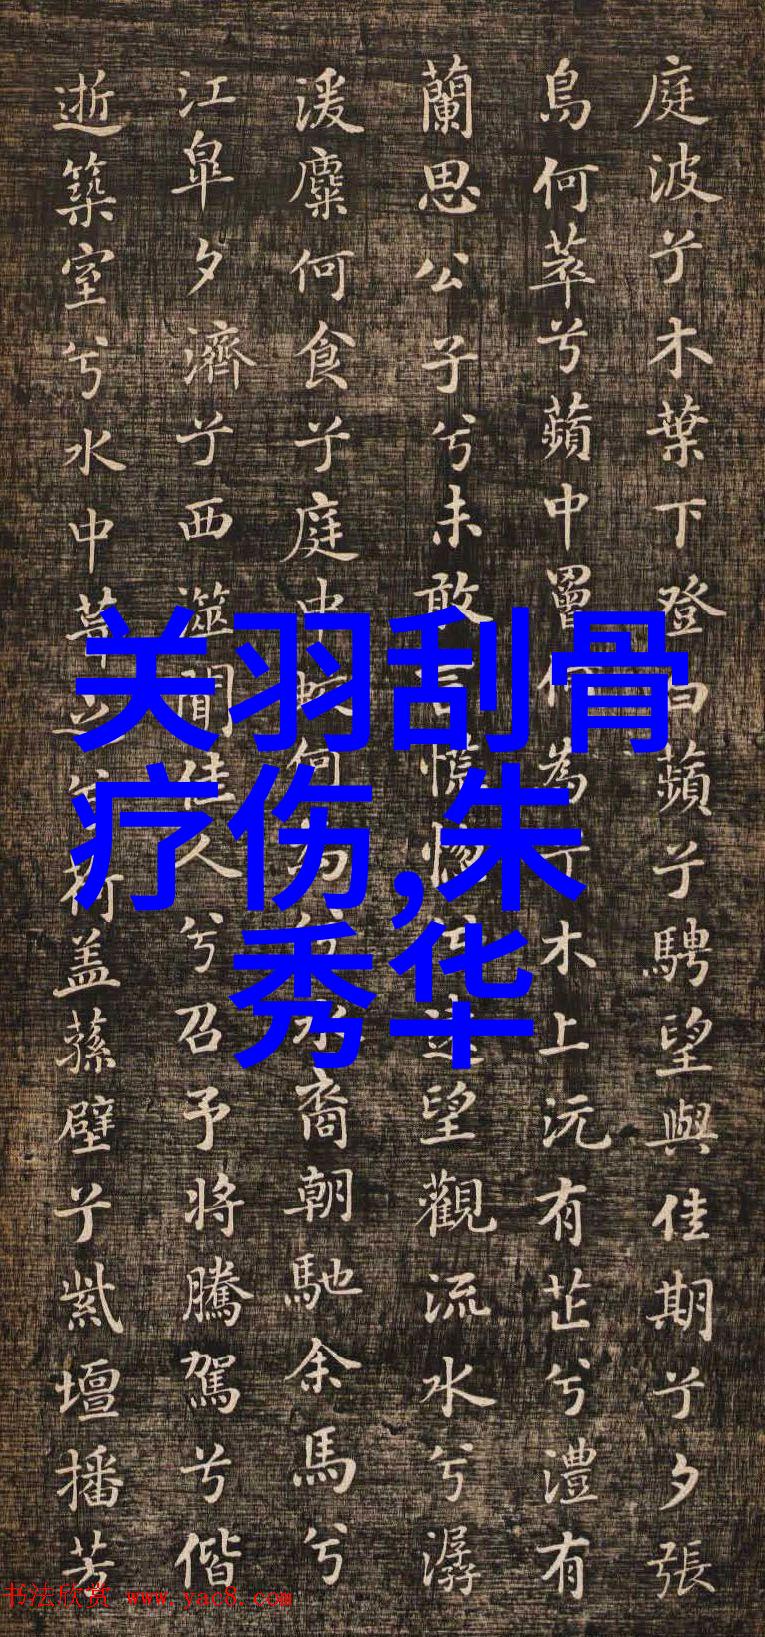 庭波兮木葉下登白蘋兮騁望與佳期兮夕張
鳥何萃兮蘋中罾何為兮木上沅有芷兮澧有
蘭思公子兮未敢言慌惚兮遠望觀流水兮潺
湲麋何食兮庭中蛟何为兮水裔朝馳余馬兮
江皐夕濟兮西澨聞佳人兮召予將騰駕兮偕
逝築室兮水中葺之兮荷盖蓀壁兮紫壇播芳
关羽刮骨
疗伤,朱
秀华
书法欣赏 www.yac8.com